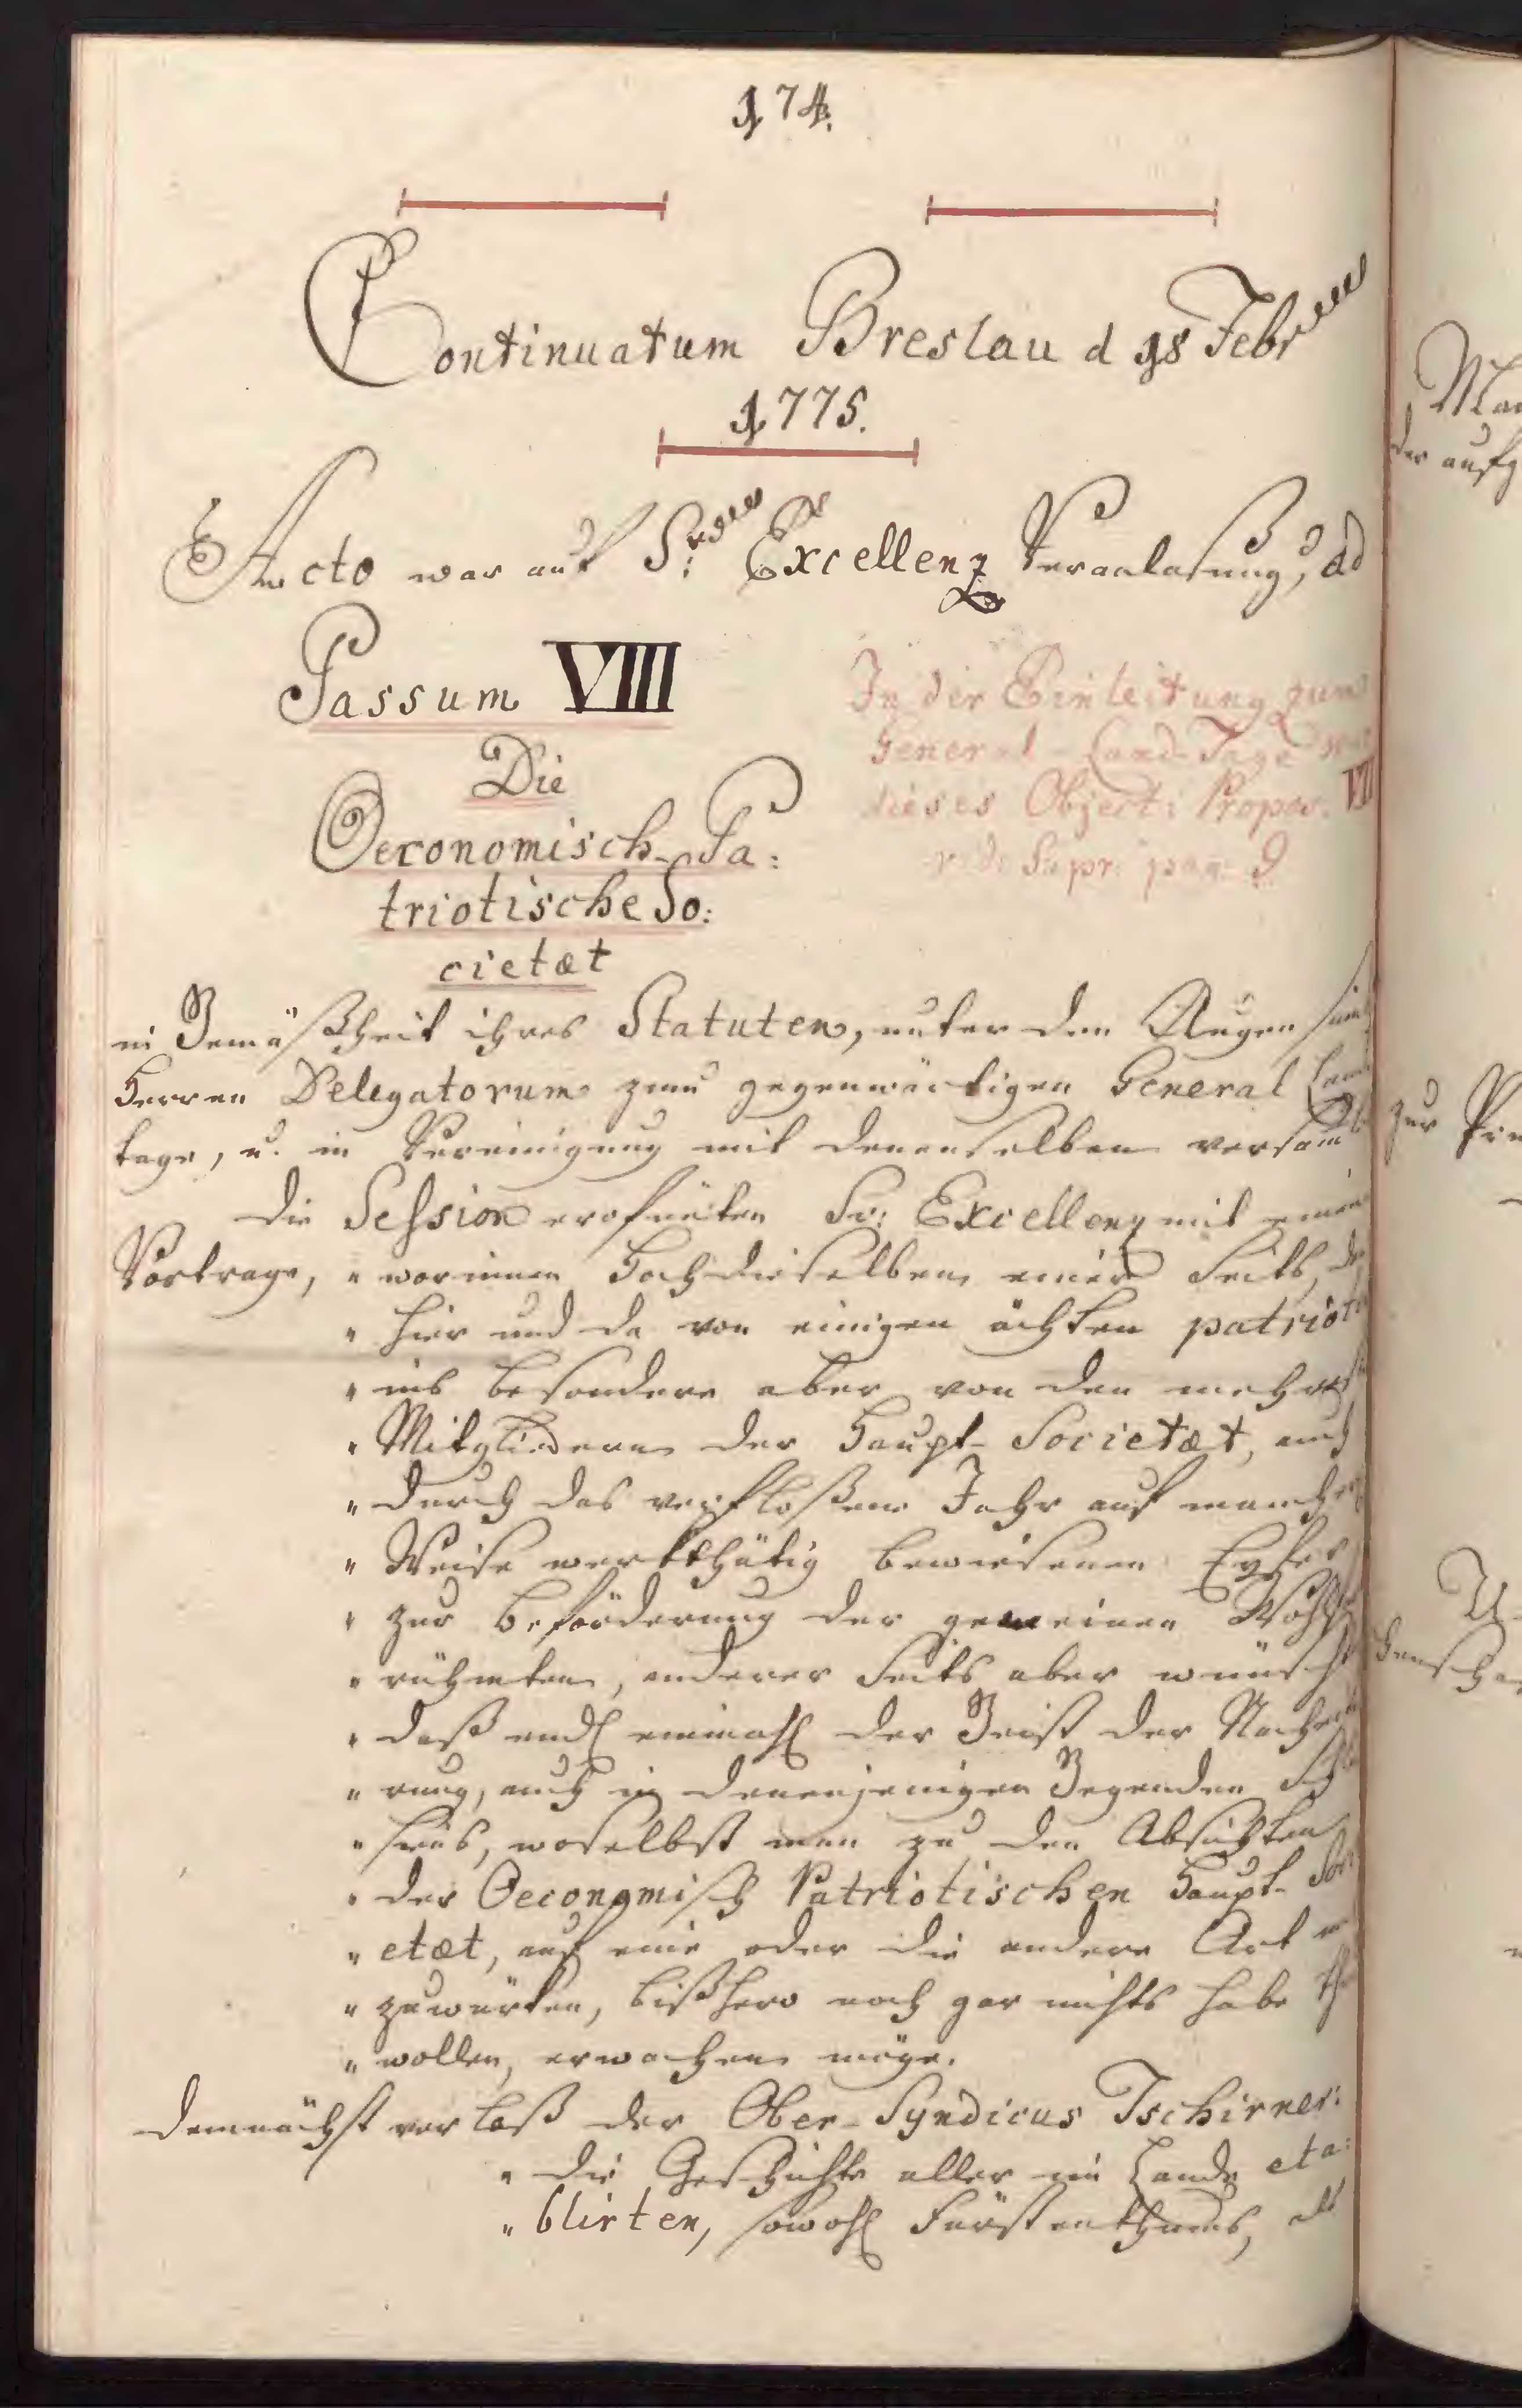 174.
Continuatum Breslau d 18 Febr
1775.
Acto war auf Sr: Excellenz Veranlaßung, ad
Passum VIII
In der Einleitung zum
General-Land-Tage
dieses Object: Propos. VII
vid: supr: pag:
Die
Oeconomisch-Pa:
triotische So:
cietæt
in Gemäßheit ihres Statuten, unter den Augen
Herren Delegatorum zum gegenwärtigen General Land
tage, u. in Vereinigung mit denenselben versam
Die Session erofneten Sr: Excellenz mit einem
Vortrage, " worinnen Hochdieselben einer Seits, den
" hier und da von einigen ächten patrioten
" ins besondere aber von den mehresten
" Mitgliedern der Haupt-Societæt, auch
" durch das verfloßene Jahr auf mancher
" Weise werkthätig bewiesenen Eyfer
" zur Beförderung der gemeinen Wohlfa
" rühmten, anderer Seits aber wünscht
" daß endl einmahl der Geist der Nachei
" rung, auch in denenjenigen Gegenden Schle
" siens, woselbst man zu den Absichten
" der Oeconomisch Patriotischen Haupt-Soci
" etæt, auf eine oder die andere Art
" zuwürken, bißhero noch gar nichts habe
" wollen, erwachen möge.
Demnächst verlaß der Ober-Syndicus Tschirner:
" die Geschichte aller im Lande eta:
" blirten, sowohl Fürstenthums, als